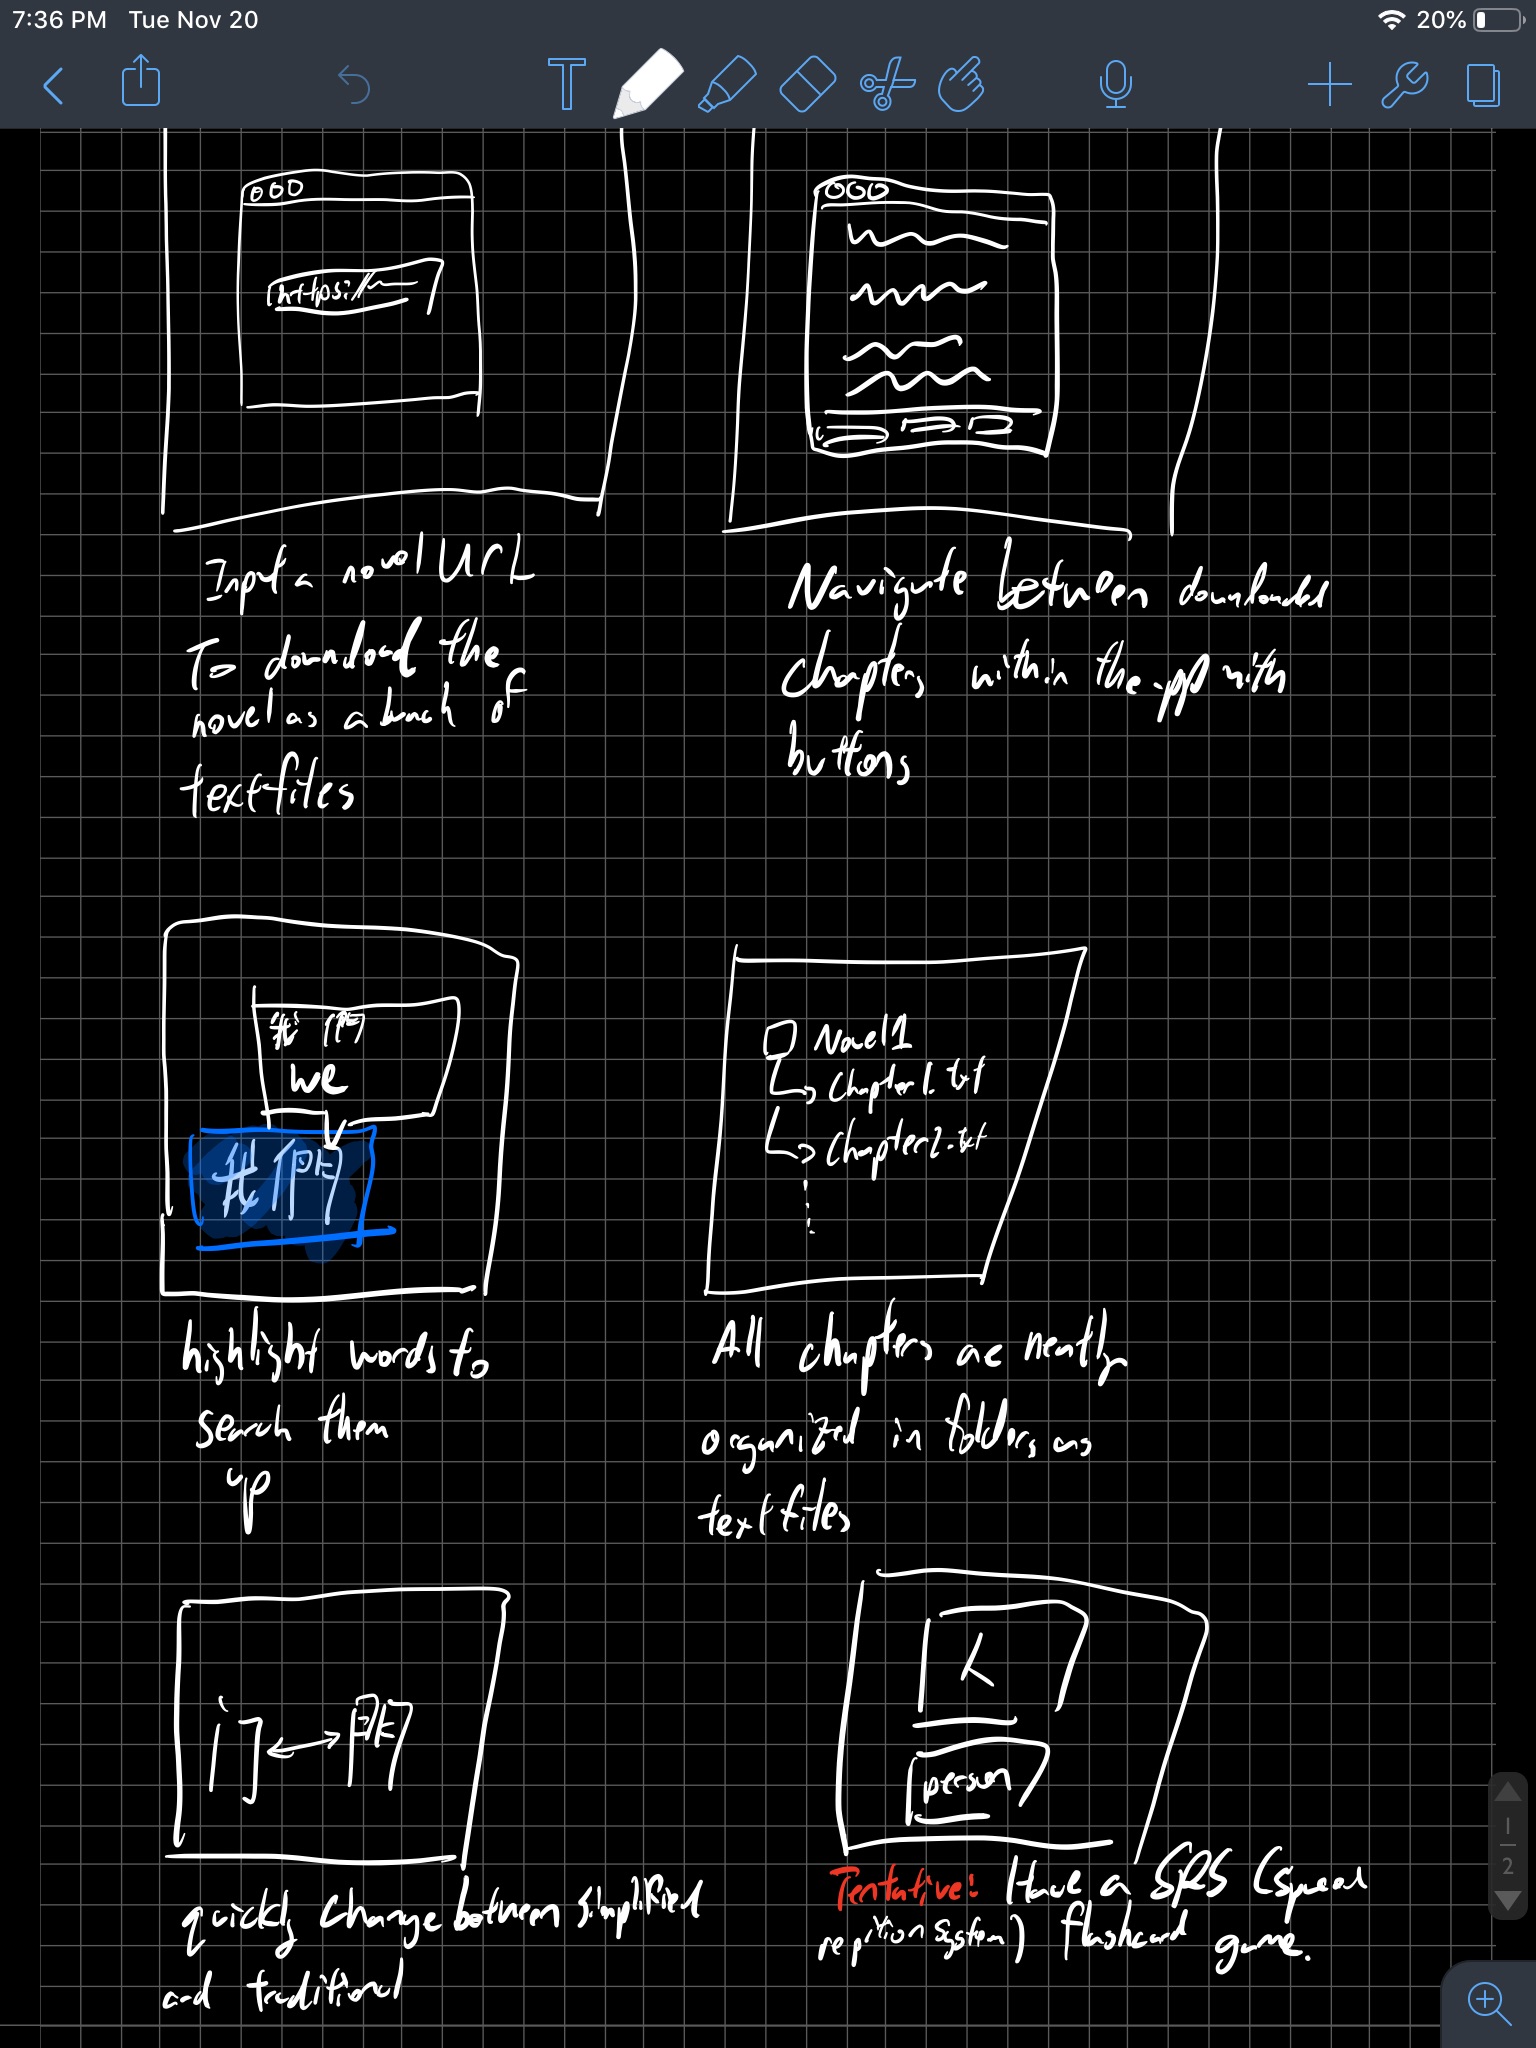 7:36 PM Tue Nov 20
20%
https://
Input a novel URL
To download the
novel as a bunch of
textfiles
Navigate between downloaded
chapters within the app with
buttons
我們
we
我們
highlight words to
search them
up
Novel 1
Chapter1.txt
Chapter2.txt
All chapters are neatly
organized in folders as
textfiles
们 ↔ 們
quickly change between simplified
and traditional
人
person
Tentative: Have a SRS (spread
repition system) flashcard game.
1
2